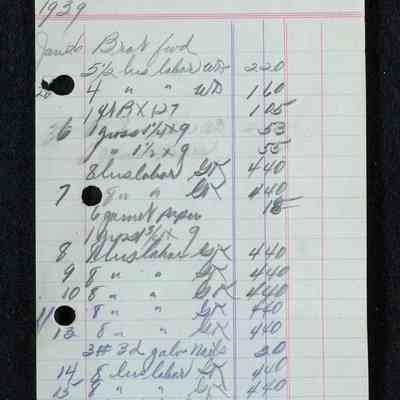 1939
Brad ford
5 1/2 hrs labor WD 220
20 4 " " WD 160
1 qt BX 127 105
6 1 gross 1 1/4 x 9 53
" 1 1/2 x 9 55
8 hrs labor GK 440
7 8 " " GK 440
6 garnet paper 18
1 1 3/4 x 9
8 8 hrs labor GK 440
9 8 " " GK 440
10 8 " " GK 440
11 8 " " GK 440
13 8 " " GK 440
3# 3d galv nails 20
14 8 hrs labor GK 440
15 8 " " GK 440